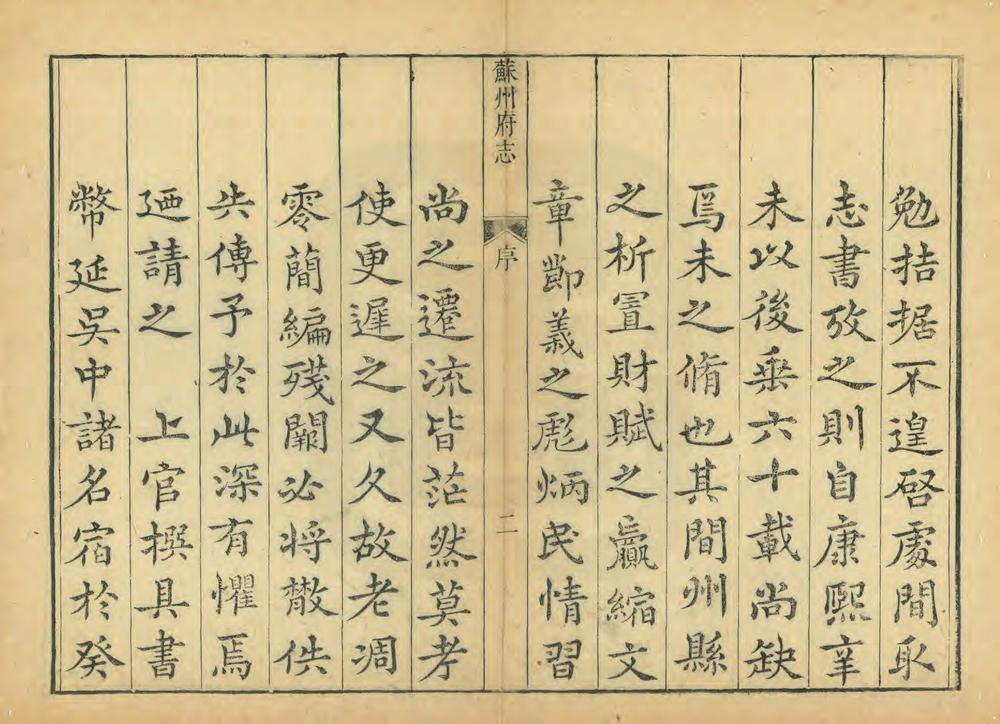 勉拮据不遑啓處間取
志書攷之則自康熙辛
未以後垂六十載尚缺
焉未之脩也其間州縣
之析置財賦之贏縮文
章節義之彪炳民情習
蘇州府志
序
二
尚之遷流皆茫然莫考
使更遲之又久故老凋
零蕳編殘闕必將散佚
失傳予於此深有懼焉
廼請之 上官撰具書
幣延吳中諸名宿於癸